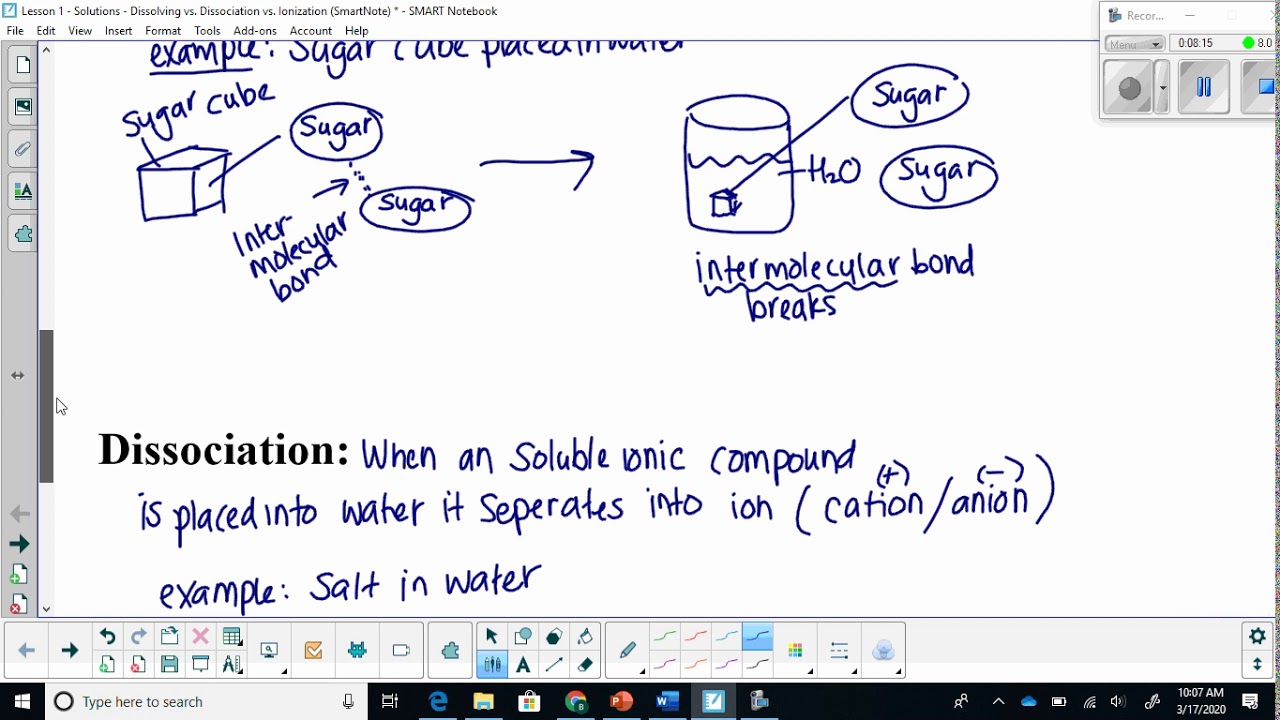 Lesson 1 - Solutions - Dissolving vs. Dissociation vs. Ionization (SmartNote) * - SMART Notebook
File Edit View Insert Format Tools Add-ons Account Help
Recor...
Menu
0:08:15
8.0
example: Sugar cube placed in water
Sugar cube
Sugar
Sugar
Inter-
molecular
bond
Sugar
H₂O
Sugar
intermolecular bond
breaks
Dissociation: When an soluble ionic compound
(+) (-)
is placed into water it seperates into ion (cation/anion)
example: Salt in water
A
Type here to search
10:07 AM
3/17/2020